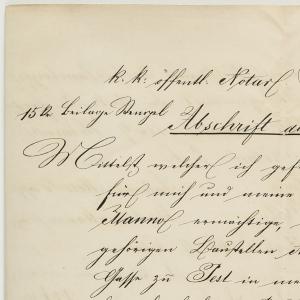 k. k. öffentl. Notar
15 k Beilage Stempel
Abschrift de
Mittelst welcher ich gef
für mich und meine
Manns ermächtige,
gehörigen Baustellen
Gasse zu Pest in me